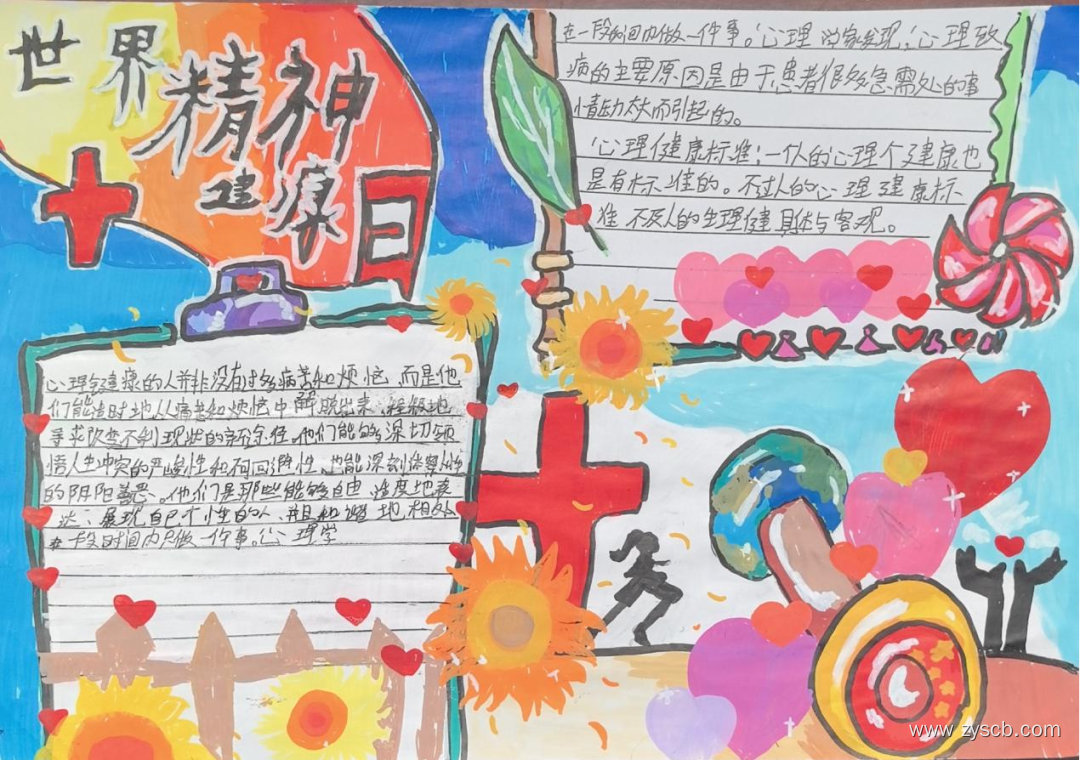 世界
精神
健康日
在一段时间内做一件事。心理学家发现，心理致
病的主要原因是由于患者很多急需处的事
情动太大而引起的。
心理健康标准：一人的心理个建康也
是有标准的。不过人的心理建康标
准不及人的生理健具体与客观。
心理健康的人并非没有过多病苦和烦恼，而是他
们能适时地从病苦和烦恼中解脱出来，积极地
寻求改变不利现状的新途径。他们能够深切领
悟人生冲突的严峻性和不可回避性，也能深刻体察人性
的阴阳善恶。他们是那些能够自由、适度地表
达、展现自已个性的人，并且和谐地相处
在一段时间内只做一件事。心理学
www.zyscb.com